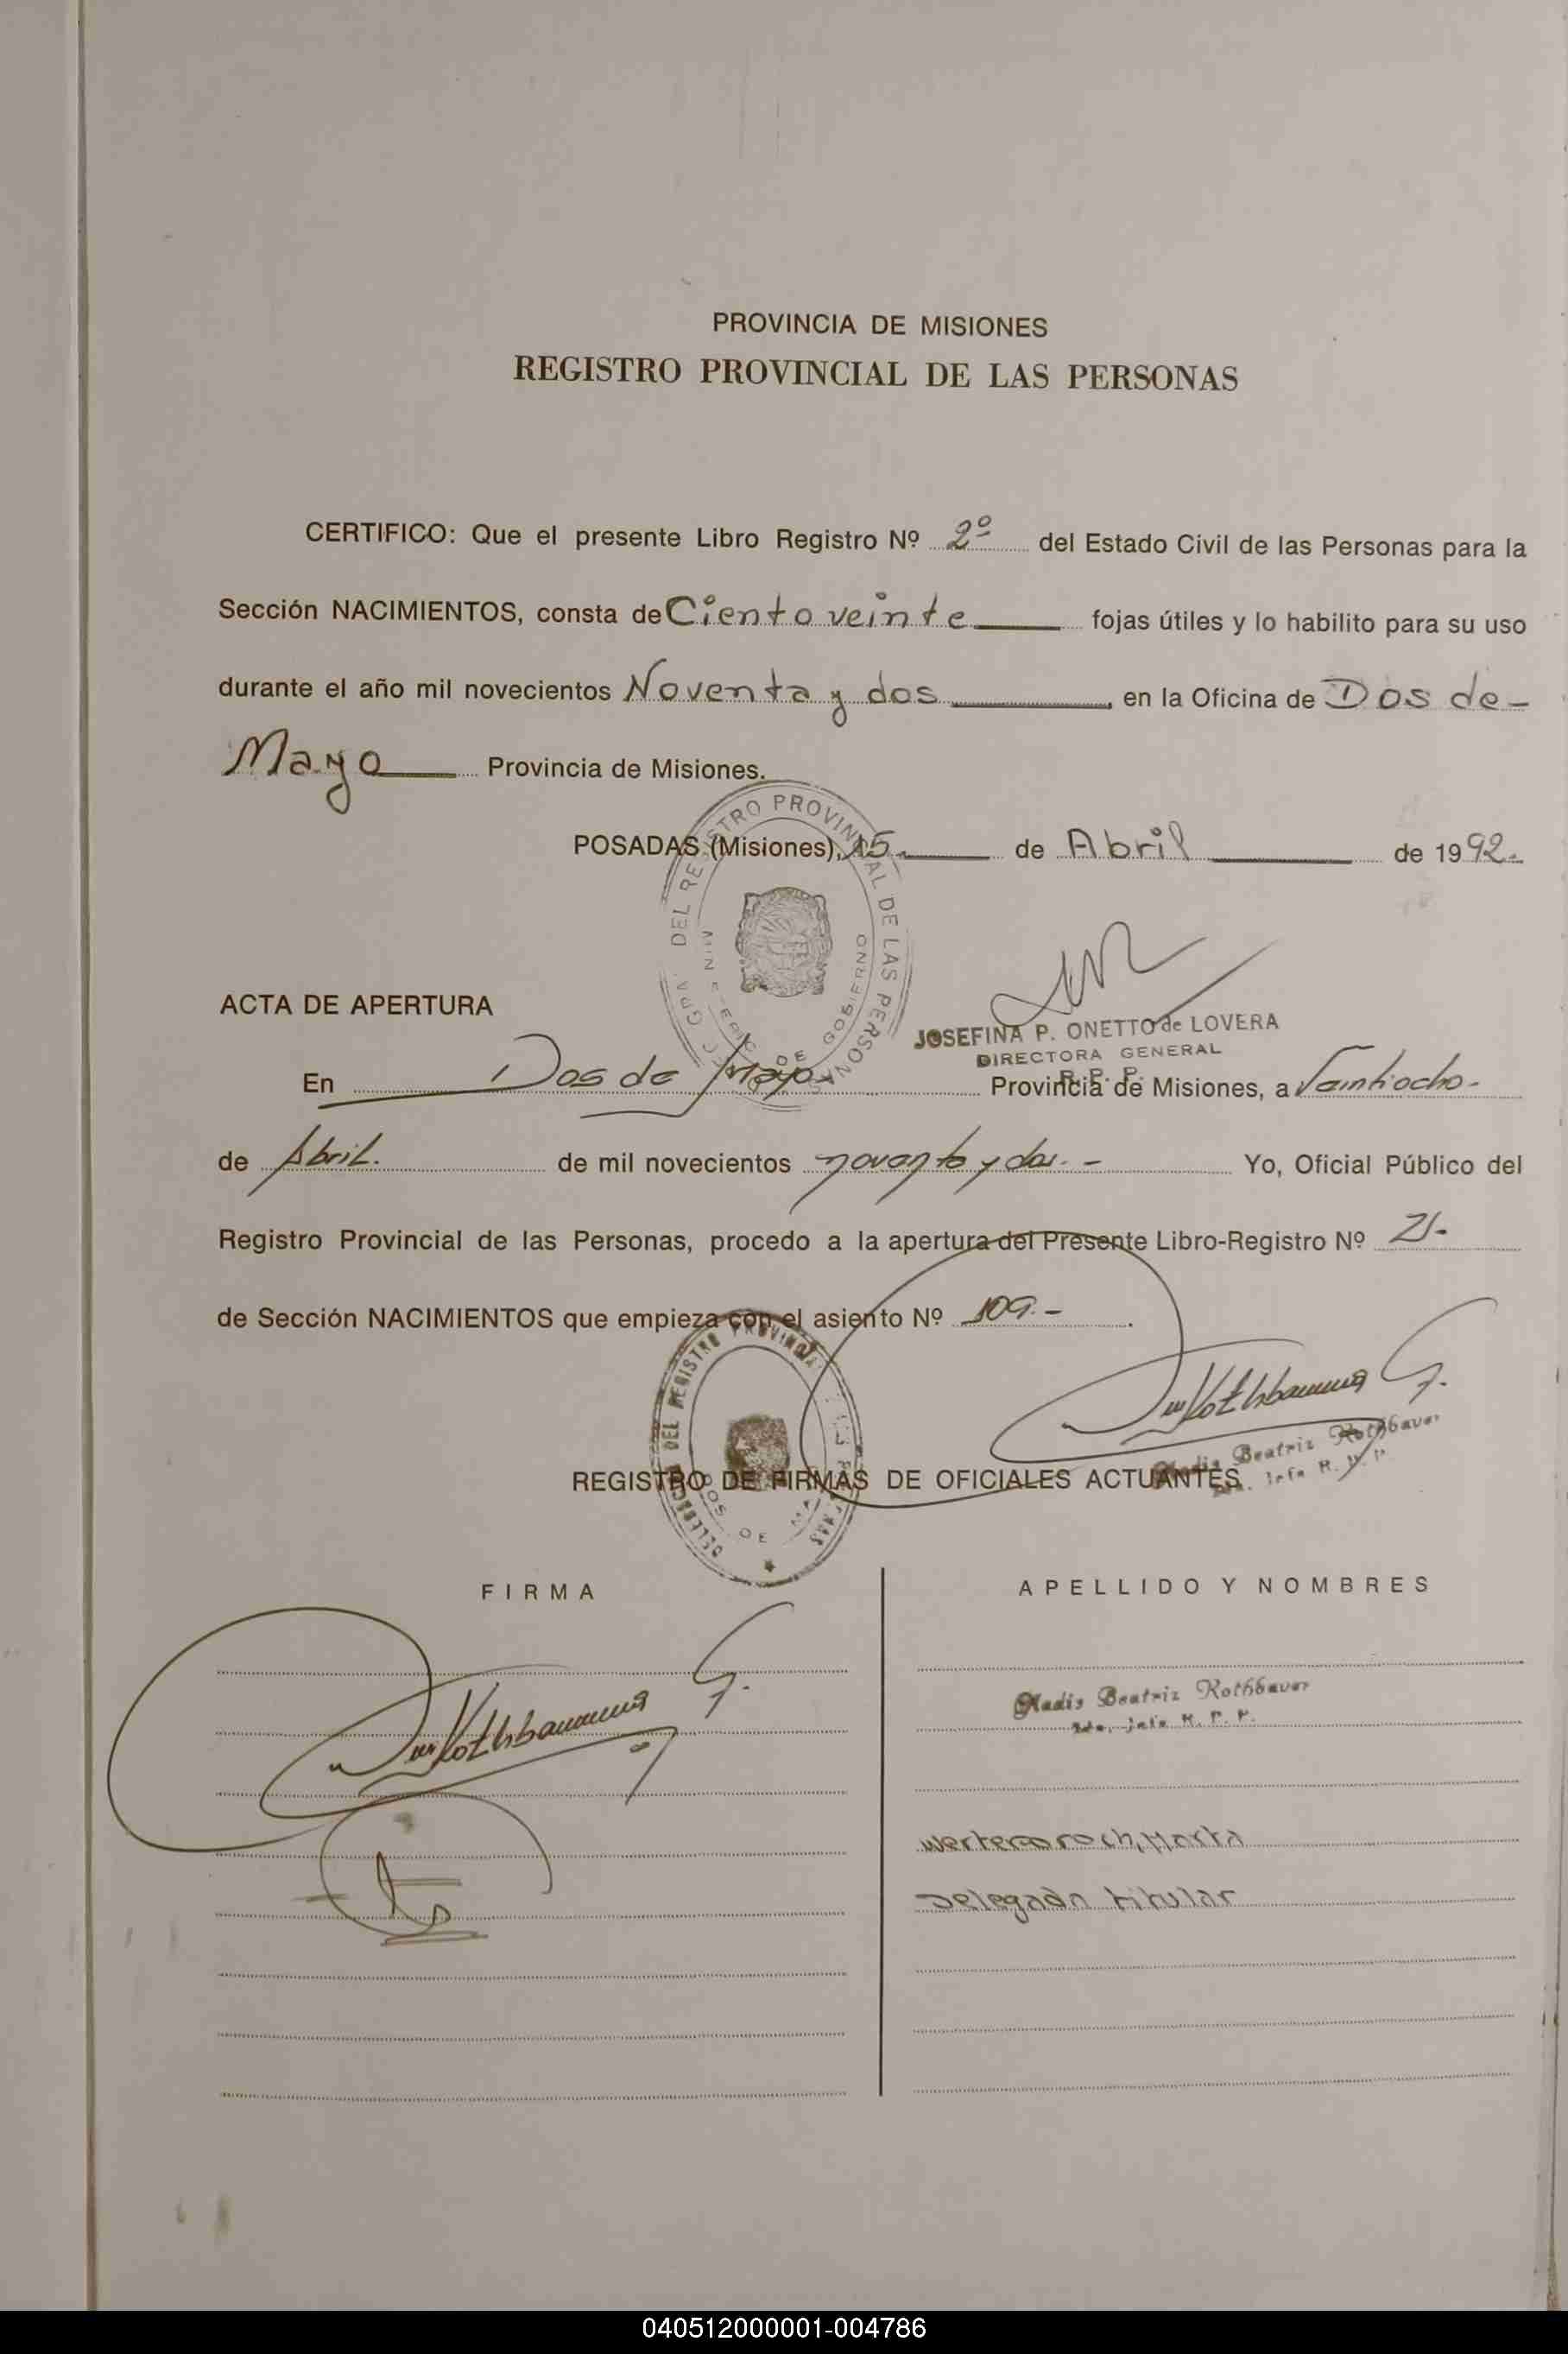 PROVINCIA DE MISIONES
REGISTRO PROVINCIAL DE LAS PERSONAS
CERTIFICO: Que el presente Libro Registro Nº 2º del Estado Civil de las Personas para la
Sección NACIMIENTOS, consta de Ciento veinte fojas útiles y lo habilito para su uso
durante el año mil novecientos Noventa y dos, en la Oficina de Dos de-
Mayo Provincia de Misiones.
POSADAS (Misiones), 15 de Abril de 1992.
DEL REGISTRO PROVINCIAL DE LAS PERSONAS
DE GOBIERNO
ACTA DE APERTURA
JOSEFINA P. ONETTO de LOVERA
DIRECTORA GENERAL
R. P. P.
En Dos de Mayo- Provincia de Misiones, a Veintiocho-
de Abril. de mil novecientos noventa y dos.- Yo, Oficial Público del
Registro Provincial de las Personas, procedo a la apertura del Presente Libro-Registro Nº
de Sección NACIMIENTOS que empieza con el asiento Nº 109.-.
DEL REGISTRO PROVINCIAL
DOS DE
Gladis Beatriz Rothbauer
REGISTRO DE FIRMAS DE OFICIALES ACTUANTES
FIRMA
APELLIDO Y NOMBRES
Gladis Beatriz Rothbauer
Jefa R. P. P.
Marta
Delegada titular
040512000001-004786